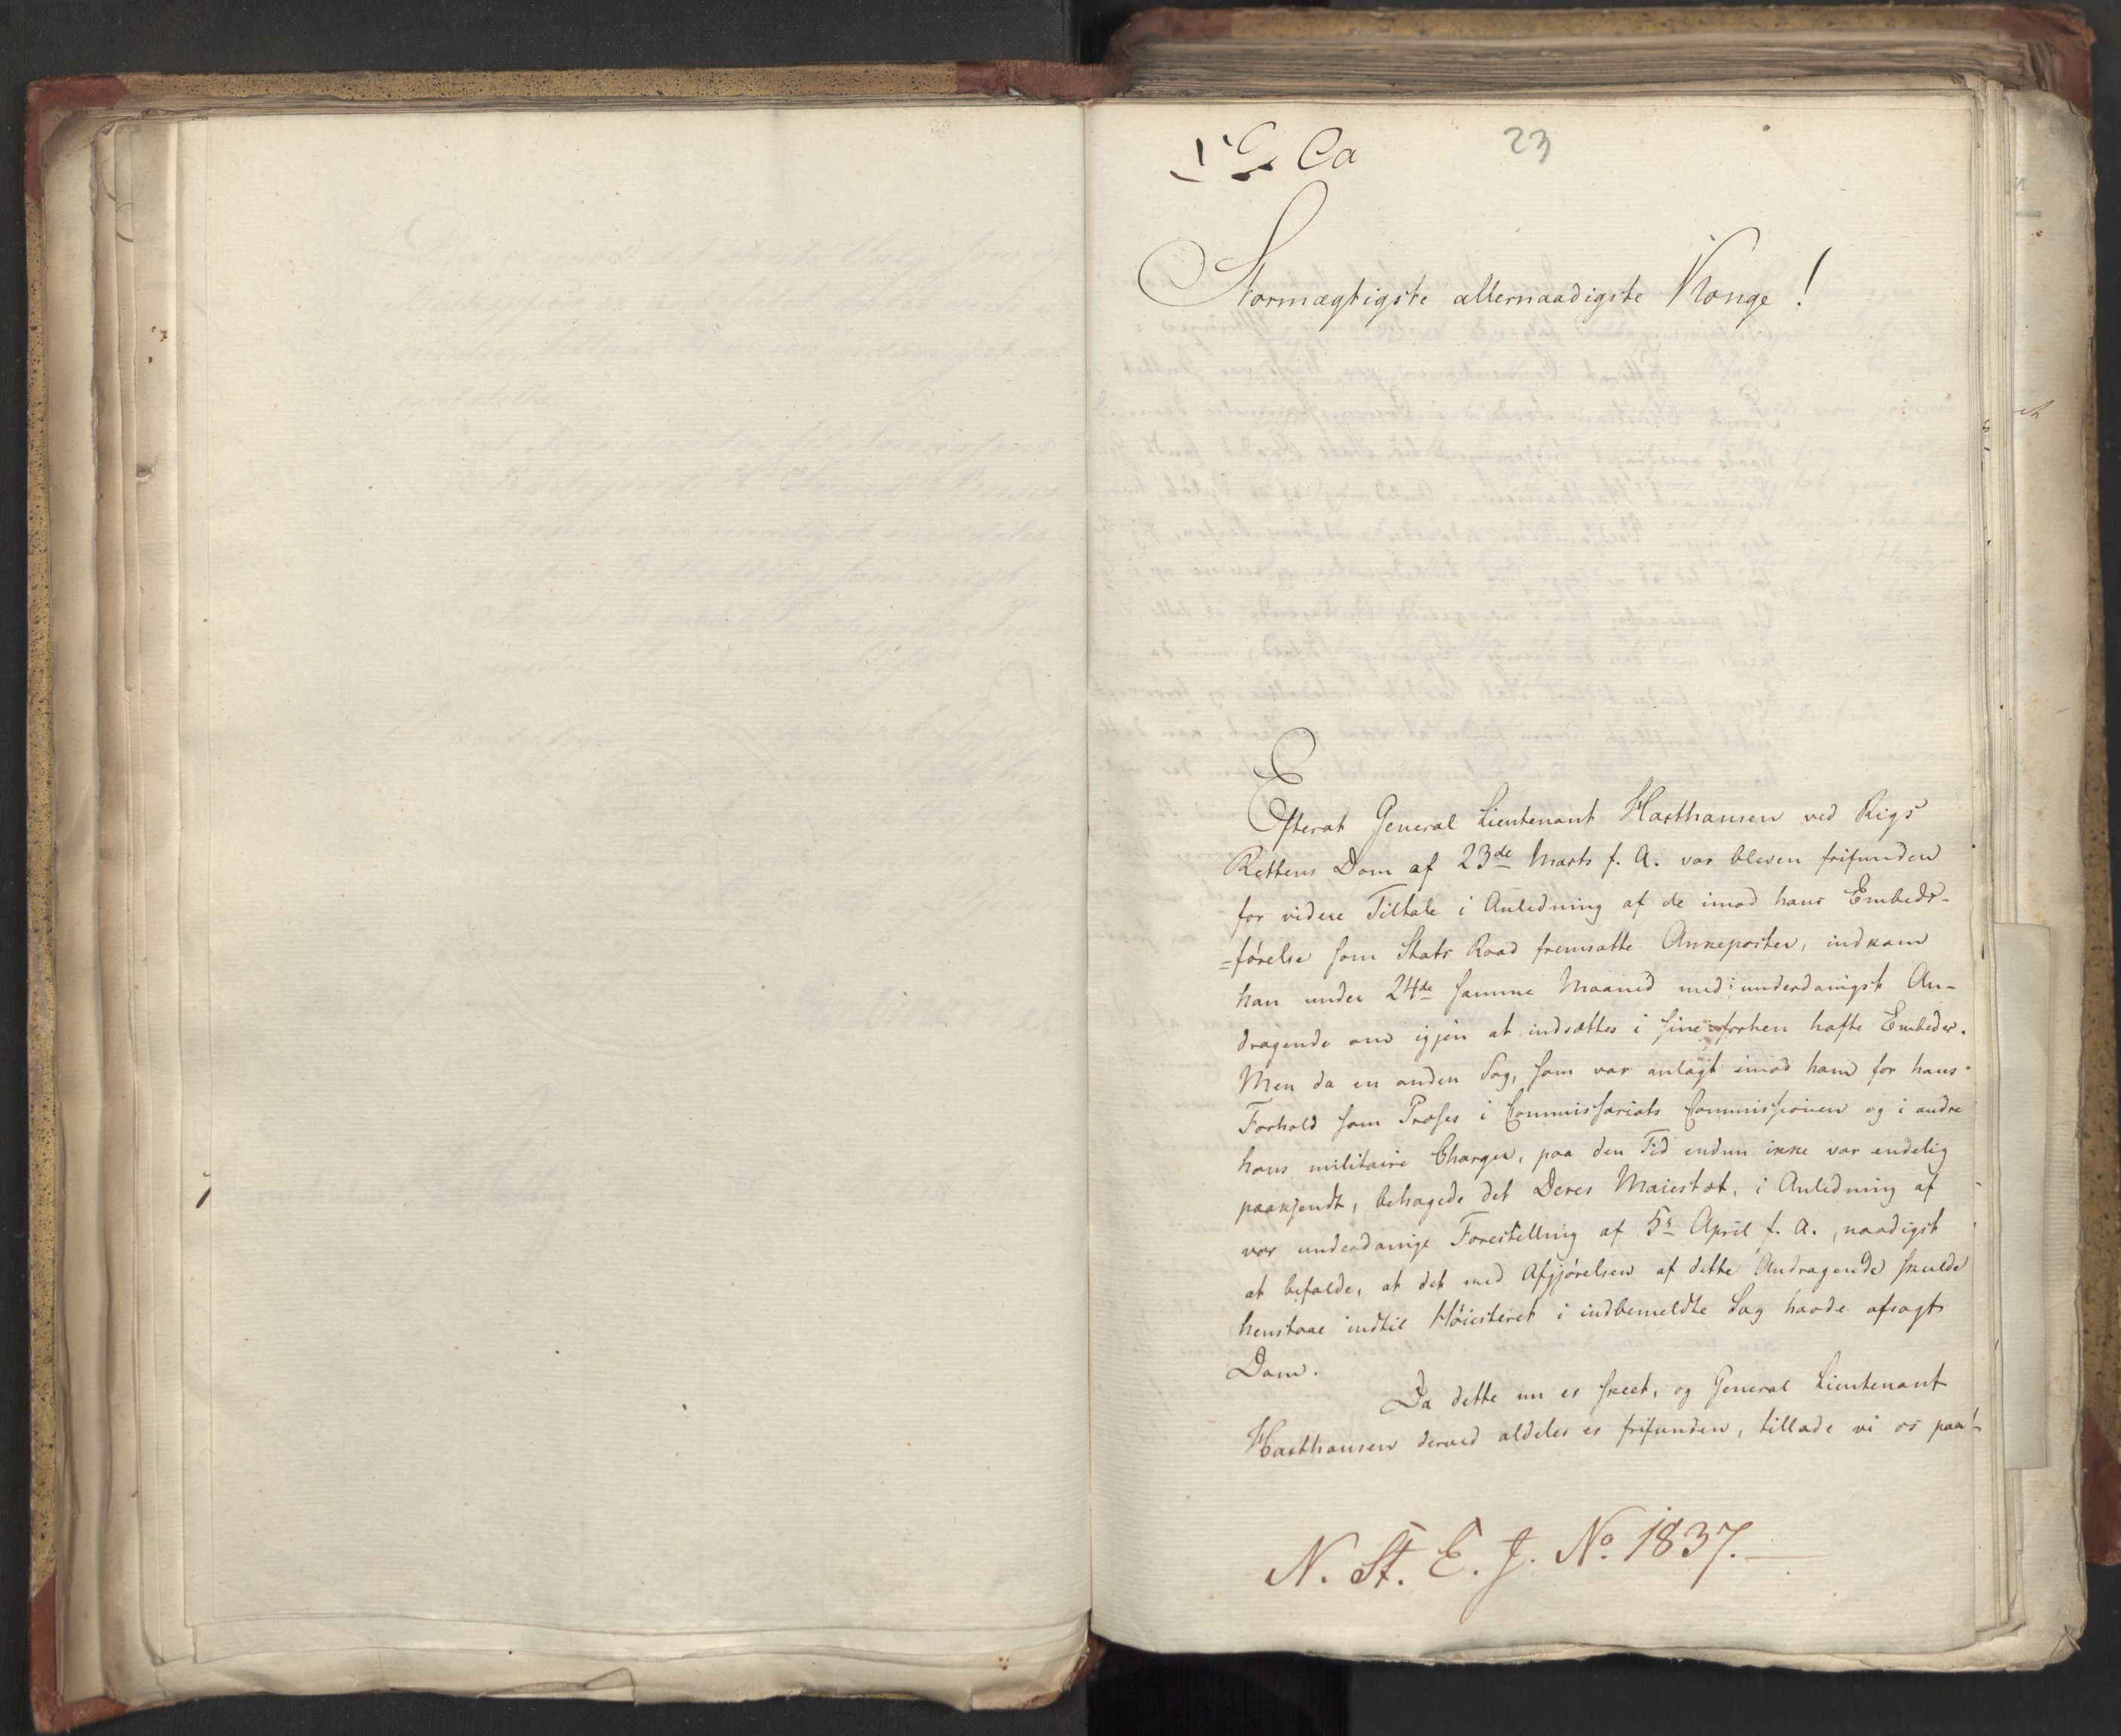 23
Stormægtigste allernaadigste Konge!
Efterat General Lieutenant Haxthausen ved Rigs
Rettens Dom af 23de Marts f. A. var bleven frifunden
for videre Tiltale i Anledning af de imod hans Embeds-
=førelse som Stats Raad fremsatte Ankeposter, indkom
han under 24de samme Maaned med underdanigst An-
dragende om igjen at indsættes i sine forhen hafte Embeder.
Men da en anden Sag, som var anlagt imod ham for hans
Forhold som Præses i Commissariats Commissionen og i andre
hans militaire Charger, paa den Tid endnu ikke var endelig
paakjendt, behagede det Deres Maiestæt, i Anledning af
vor underdanige Forestilling af 5te April f. A., naadigst
at befalde, at det med Afgjørelsen af dette Andragende skulde
henstaae indtil Høiesteret i indbemeldte Sag havde afsagt
Dom.
Da dette nu er skeet, og General Lieutenant
Haxthausen derved aldeles er frifunden, tillade vi os paa
N. St. E. J. No. 1837.